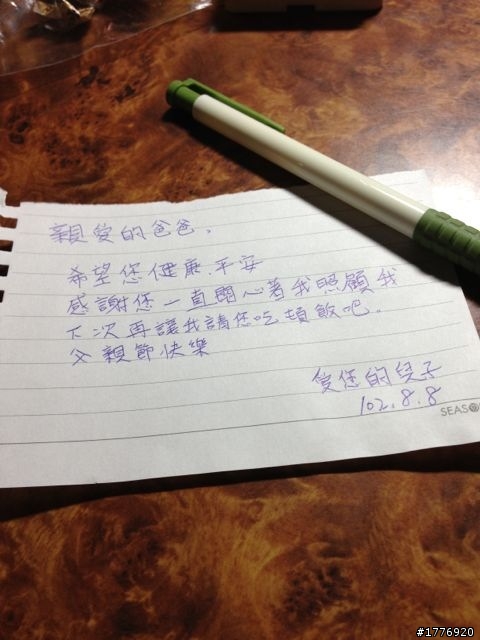 親愛的爸爸,
希望您健康.平安
感謝您一直關心著我照顧我
下次再讓我請您吃頓飯吧.
父親節快樂
愛您的兒子
102.8.8
SEASO
#1776920